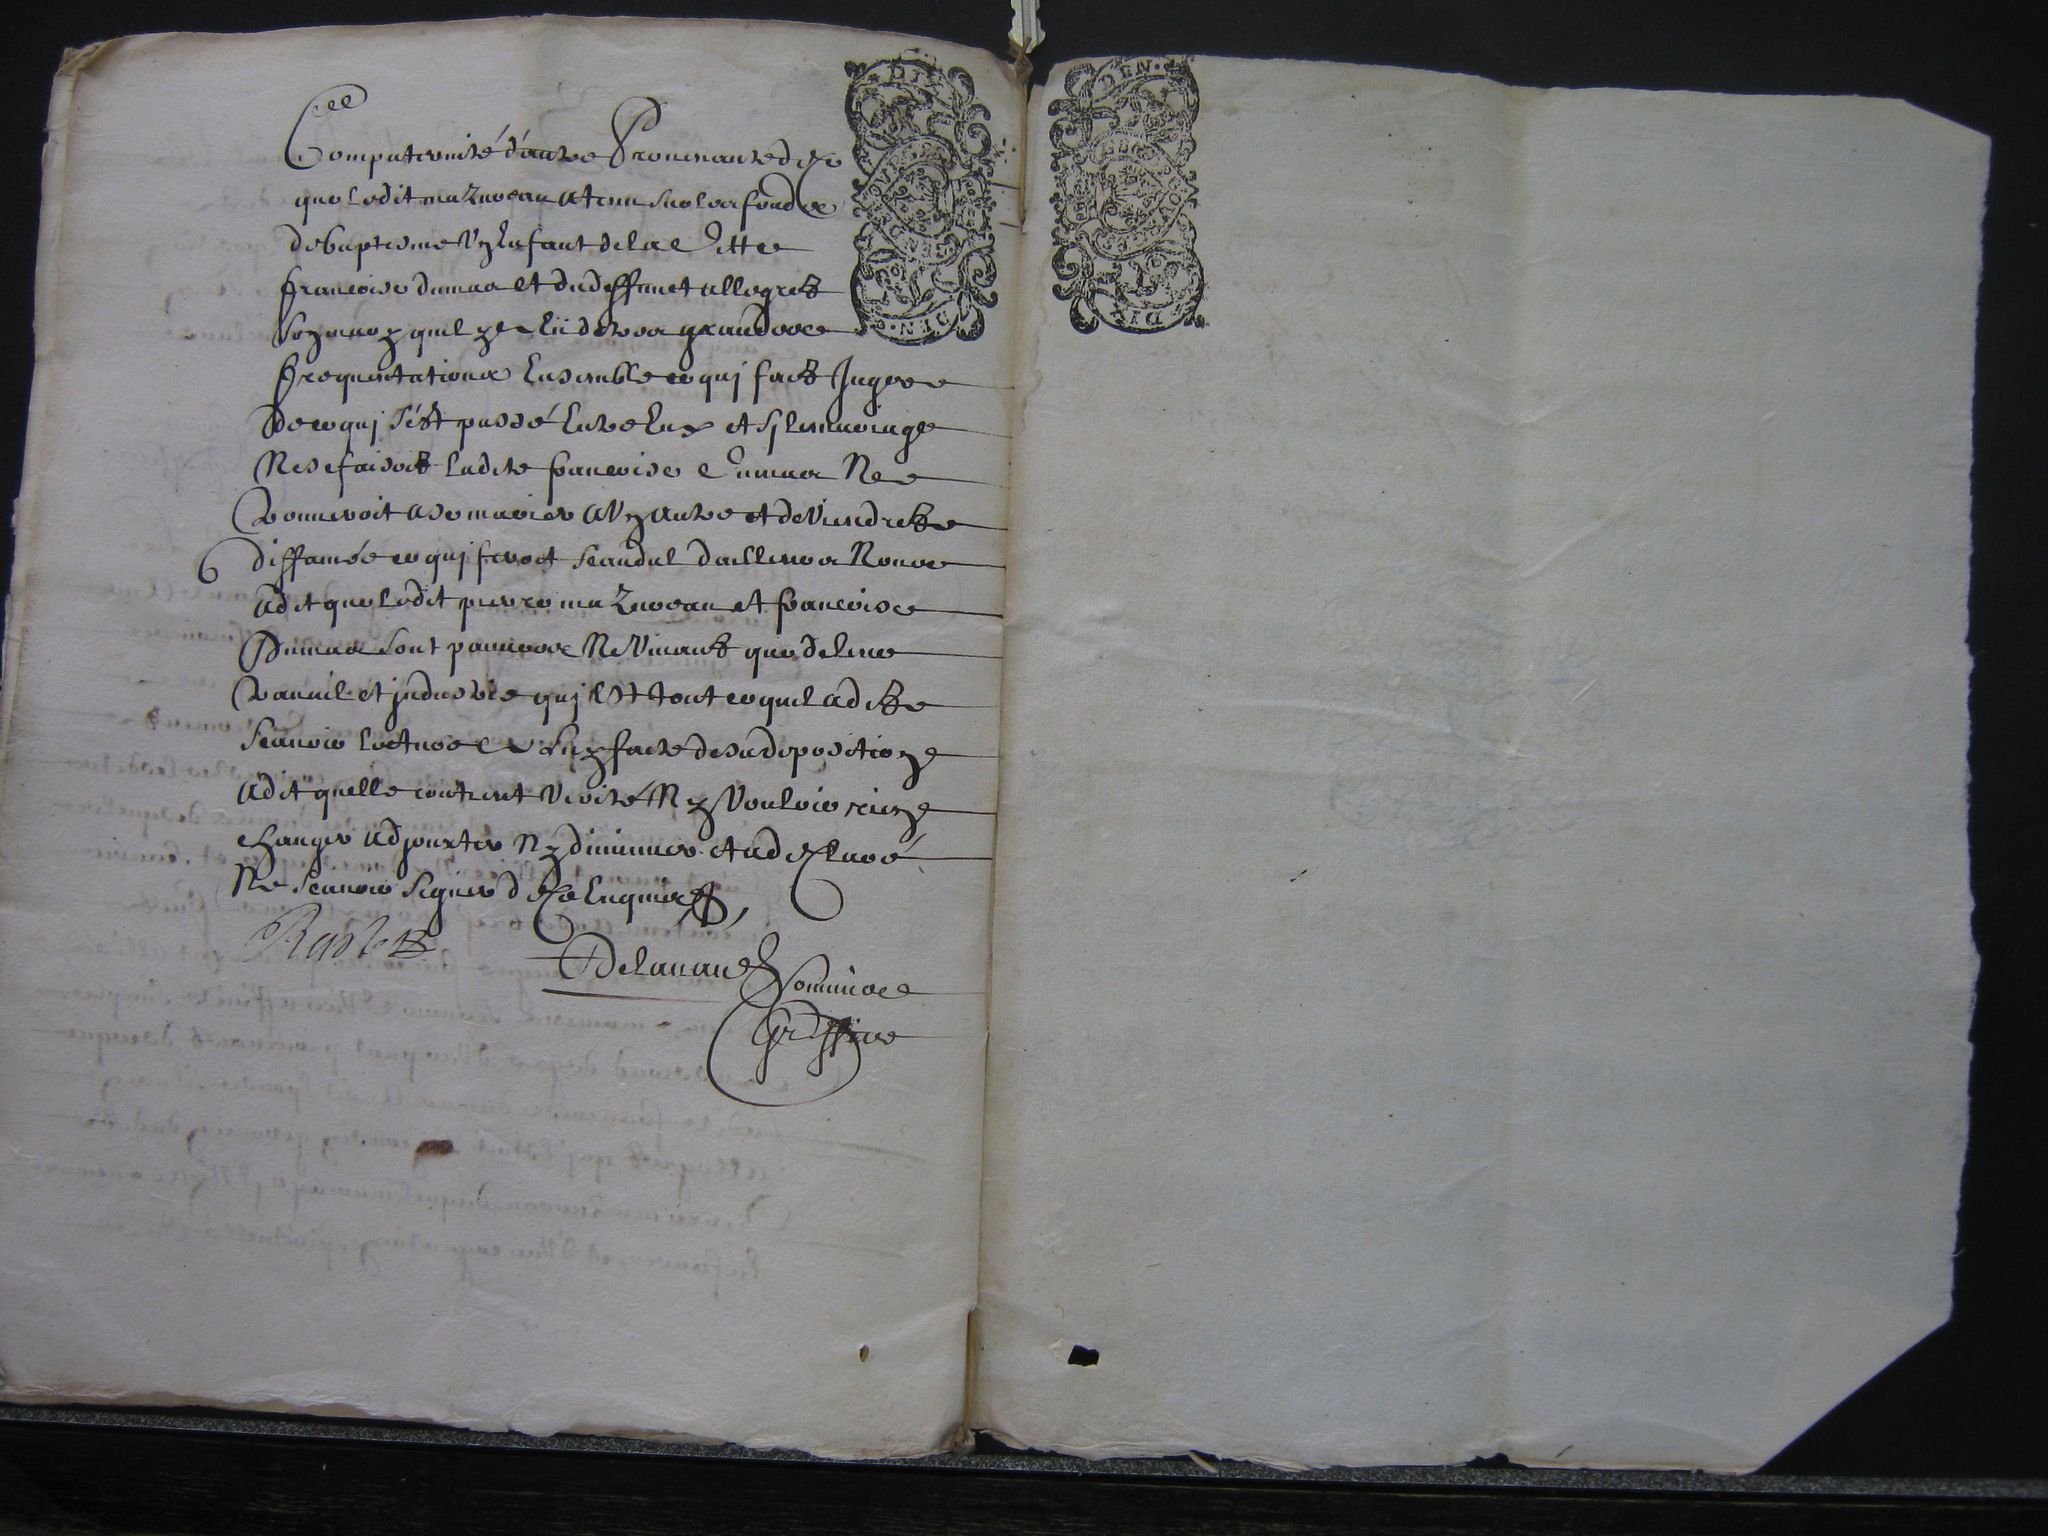 Compaternité d'autre Provenante de ce
que ledit mazuoeau a tenu sur les fonds
de baptesme un enfant de la ditte
francoise dumas et du deffunct allegret
son mary quil y a eu de tres grandes
frequentations ensemble ce qui faict Juger
de ce qui s'est passé entre eux et si le mariage
Ne se faisoit ladite francoise dumas Ne
trouveroit a se marier a un autre et deviendroit
diffamée ce qui seroit scandal dailleurs Nous
a dit que ledit pierre mazuoeau et francoise
Dumas sont pauvres Ne Vivants que de leur
travail et industrie qui est tout ce quil a dit
scavoir lecture a luy faite de sa deposition
a dit quelle contient Verité Ny Vouloir rien
changer adjouxter Ny diminuer et a declaré
Ne scavoir signer de ce enquis
Delanau
Commis
Greffier
DIX DEN
DEN
DIX